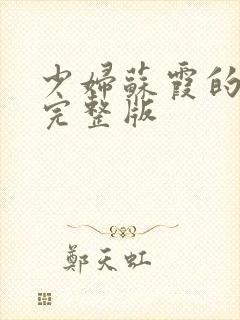 少婦蘇霞的
完整版
鄭天虹